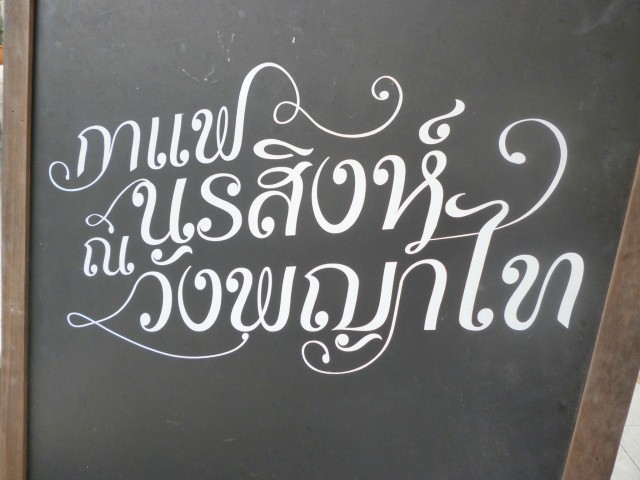 กาแฟ
นรสิงห์
ณ
วังพญาไท